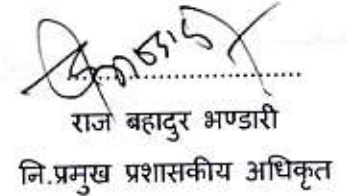 राज बहादुर भण्डारी
नि.प्रमुख प्रशासकीय अधिकृत